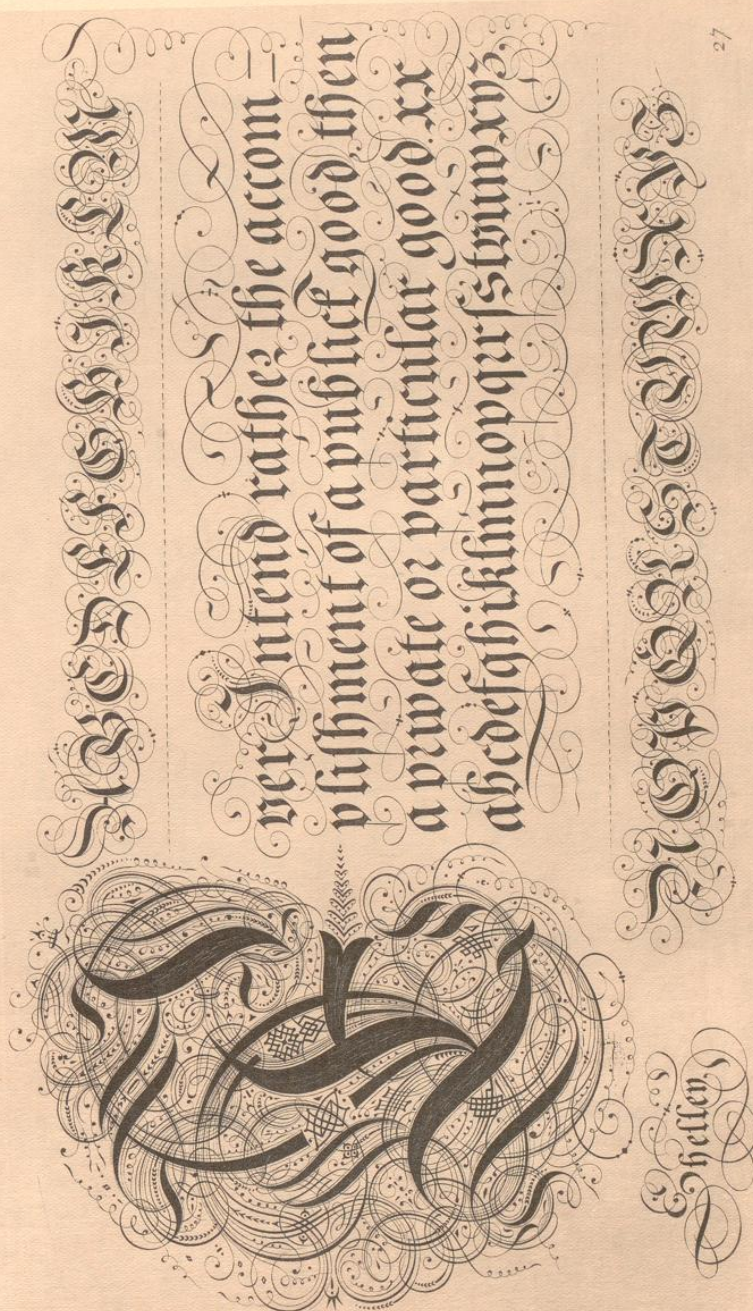 A B C D E F G H I K L M
Ever Intend rather the accom=
pliſhment of a publick good, then
a private or particular good. xx
abcdefghiklmnopqrſstvuwxyz
N O P Q R S T U W X Y Z
Shelley
27